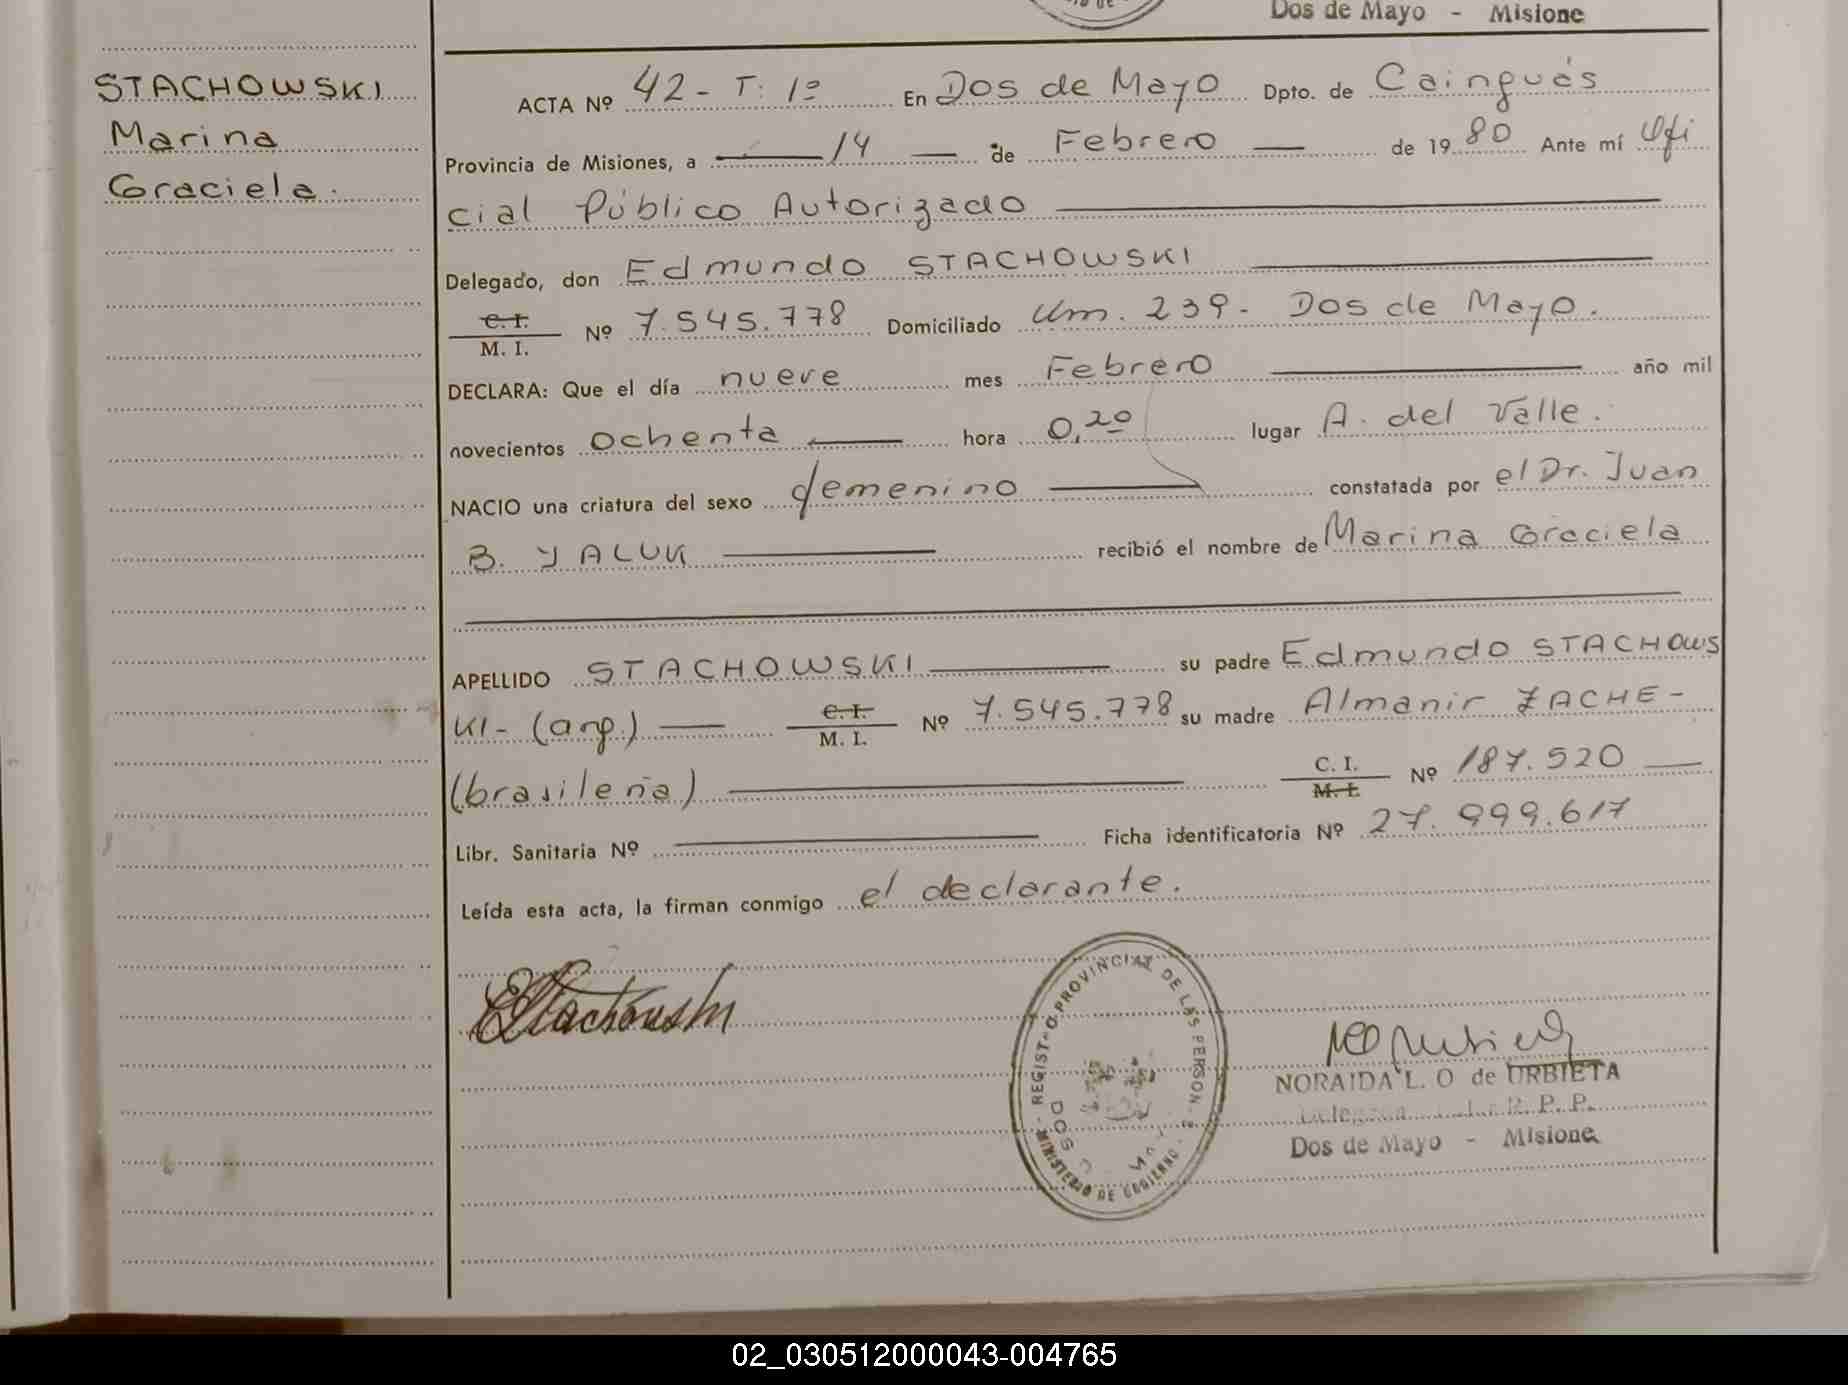 Dos de Mayo - Misione
STACHOWSKI
Marina
Graciela.
ACTA Nº 42 - T: 1º En Dos de Mayo Dpto. de Cainguás
Provincia de Misiones, a 14 de Febrero de 1980 Ante mí Ofi
cial Público Autorizado
Delegado, don Edmundo STACHOWSKI
C. I.
M. I. Nº 7.545.778 Domiciliado Km. 239 - Dos de Mayo.
DECLARA: Que el día nueve mes Febrero año mil
novecientos ochenta hora 0,20 lugar A. del Valle.
NACIO una criatura del sexo femenino constatada por el Dr. Juan
B. YALUK recibió el nombre de Marina Graciela
APELLIDO STACHOWSKI su padre Edmundo STACHOWS
KI - (arg.) C. I. M. I. Nº 7.545.778 su madre Almanir ZACHE -
(brasileña) C. I. M. I. Nº 187.520
Libr. Sanitaria Nº Ficha identificatoria Nº 27.999.617
Leída esta acta, la firman conmigo el declarante.
EStachowski
REGISTRO PROVINCIAL DE LAS PERSONAS
MINISTERIO DE GOBIERNO
DOS
NORAIDA L. O de URBIETA
R. P. P.
Dos de Mayo - Misione
02_030512000043-004765